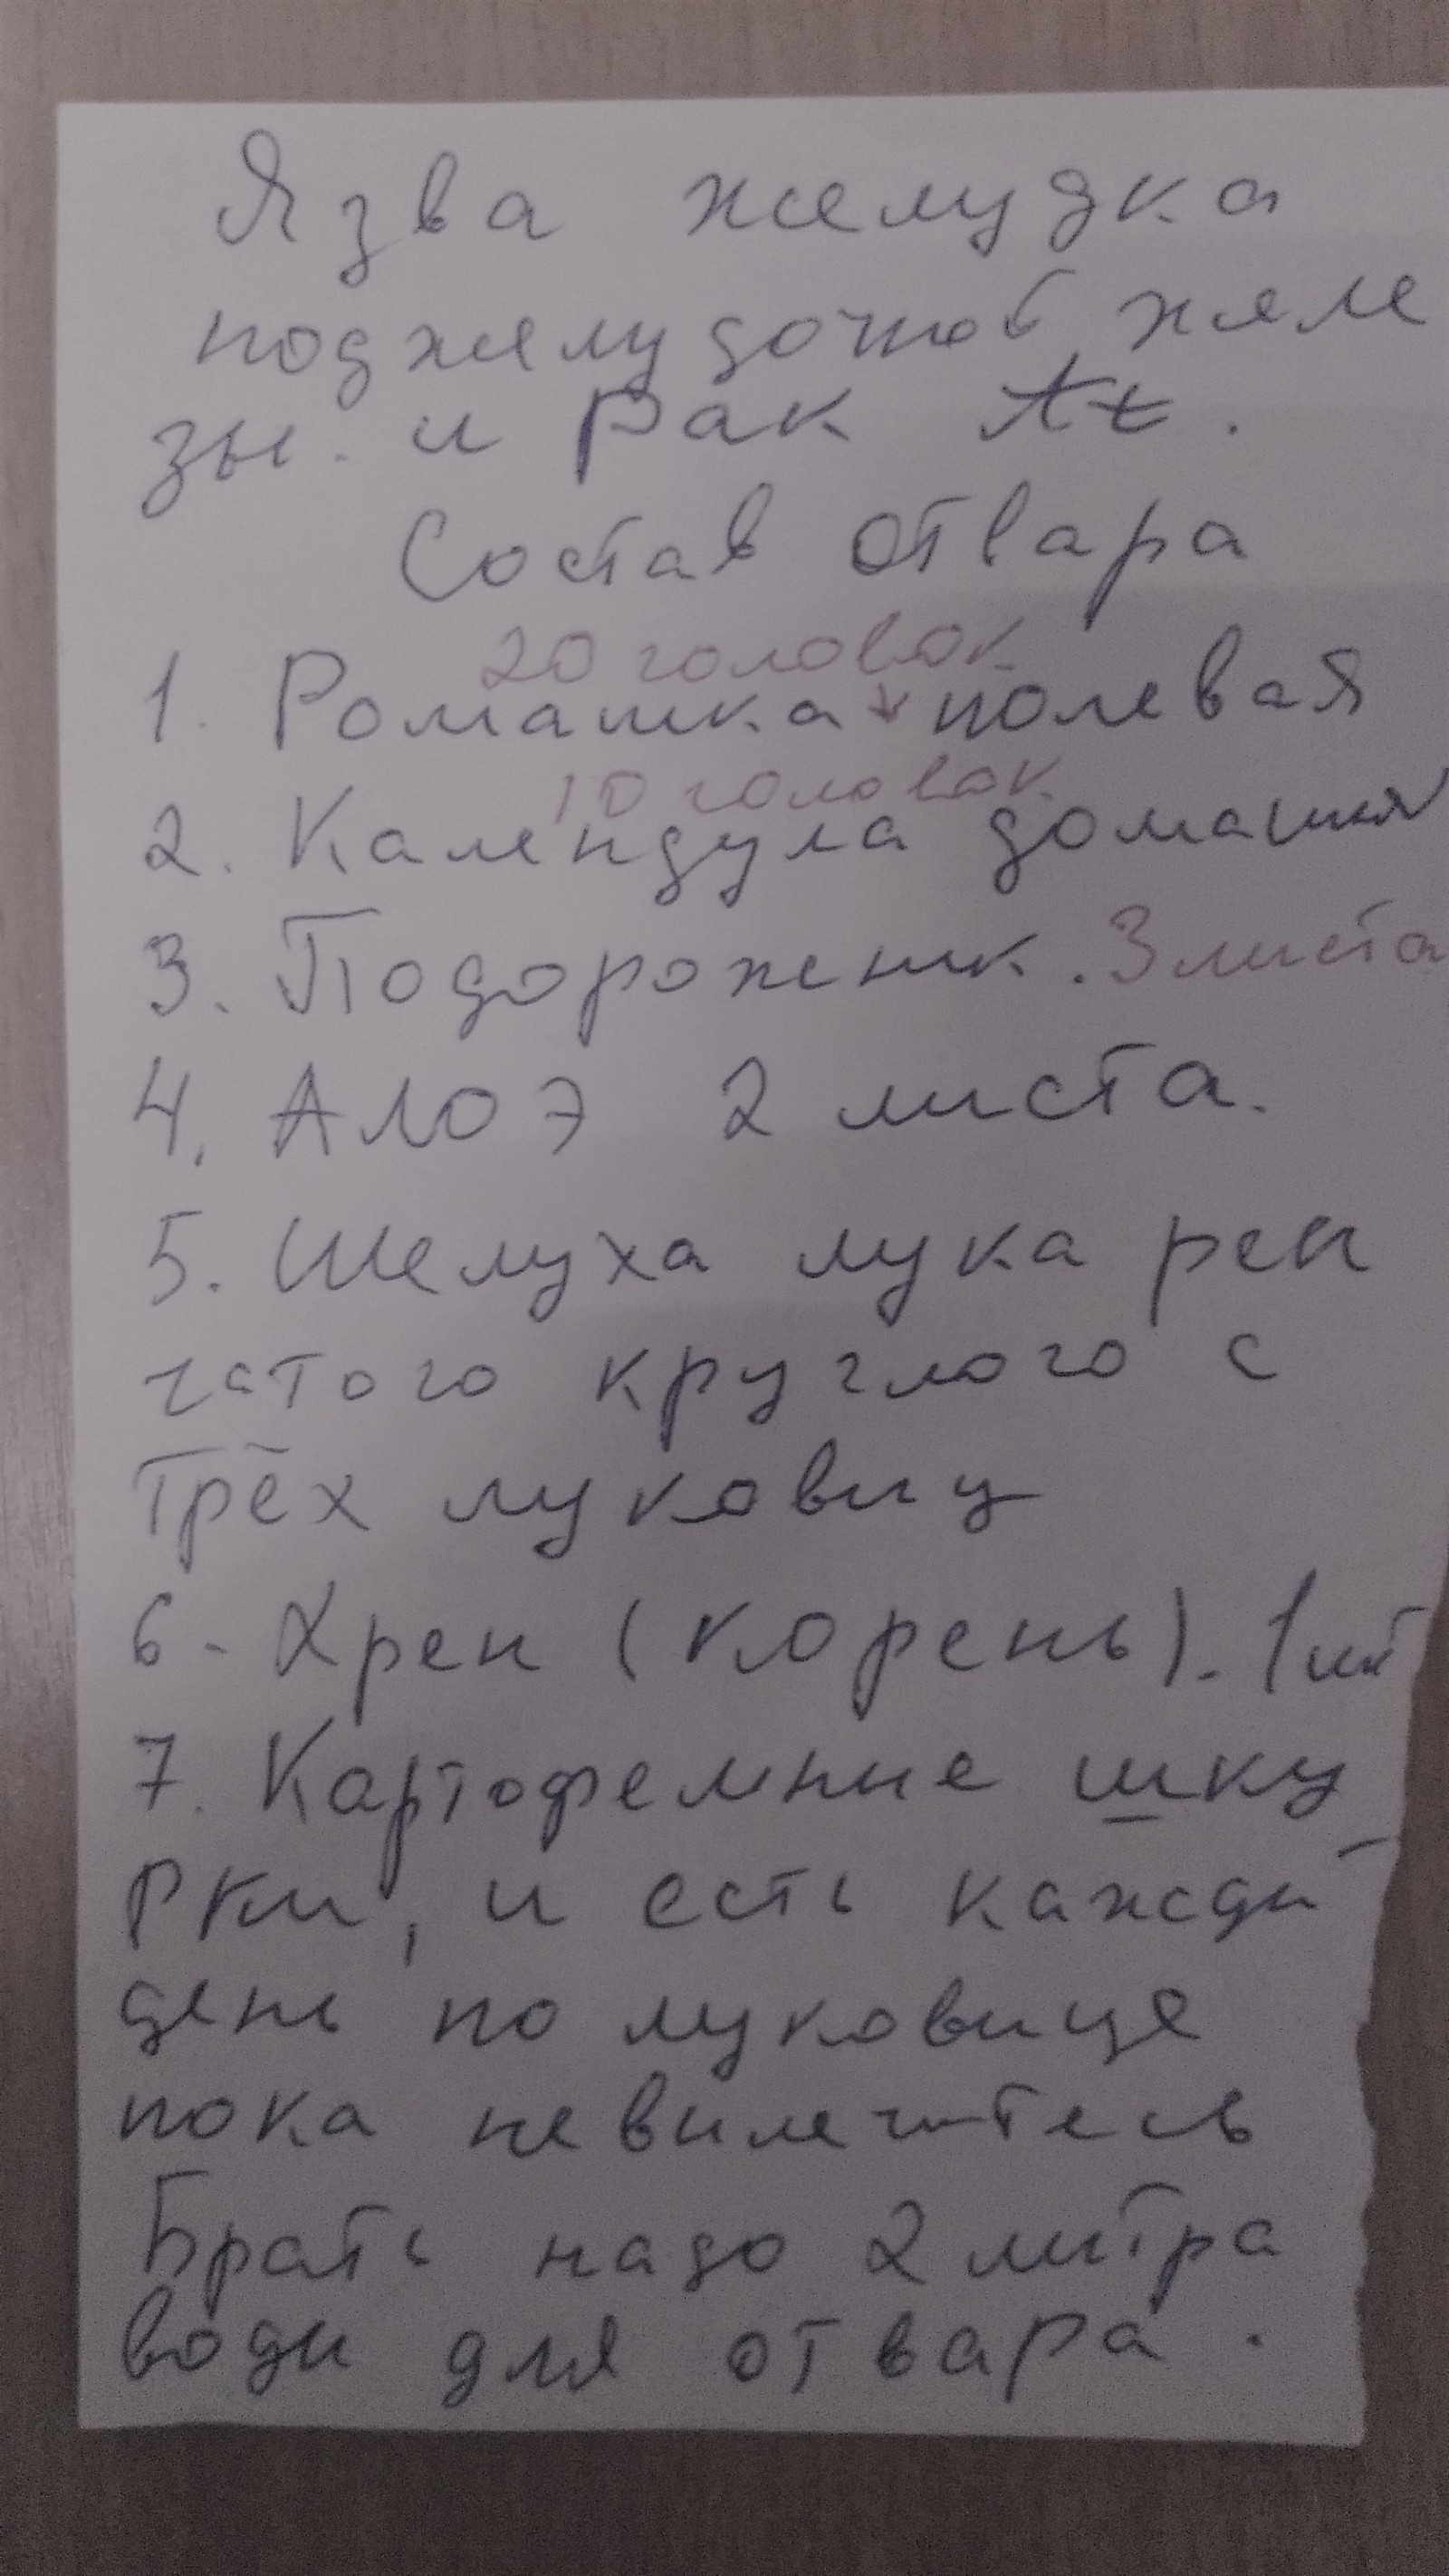 Язва желудка
поджелудочной желе
зы. и Рак
Состав отвара
20 головок
1. Ромашка полевая
10 головок
2. Календула домашняя
3. Подорожник. 3 листа
4. АЛОЭ 2 листа.
5. Шелуха лука реп
чатого круглого с
трёх луковиц
6. Хрен (корень). 1 шт
7. Картофельные шку
рки, и есть кажди
день по луковице
пока невилечитесь
Брать надо 2 литра
води для отвара.